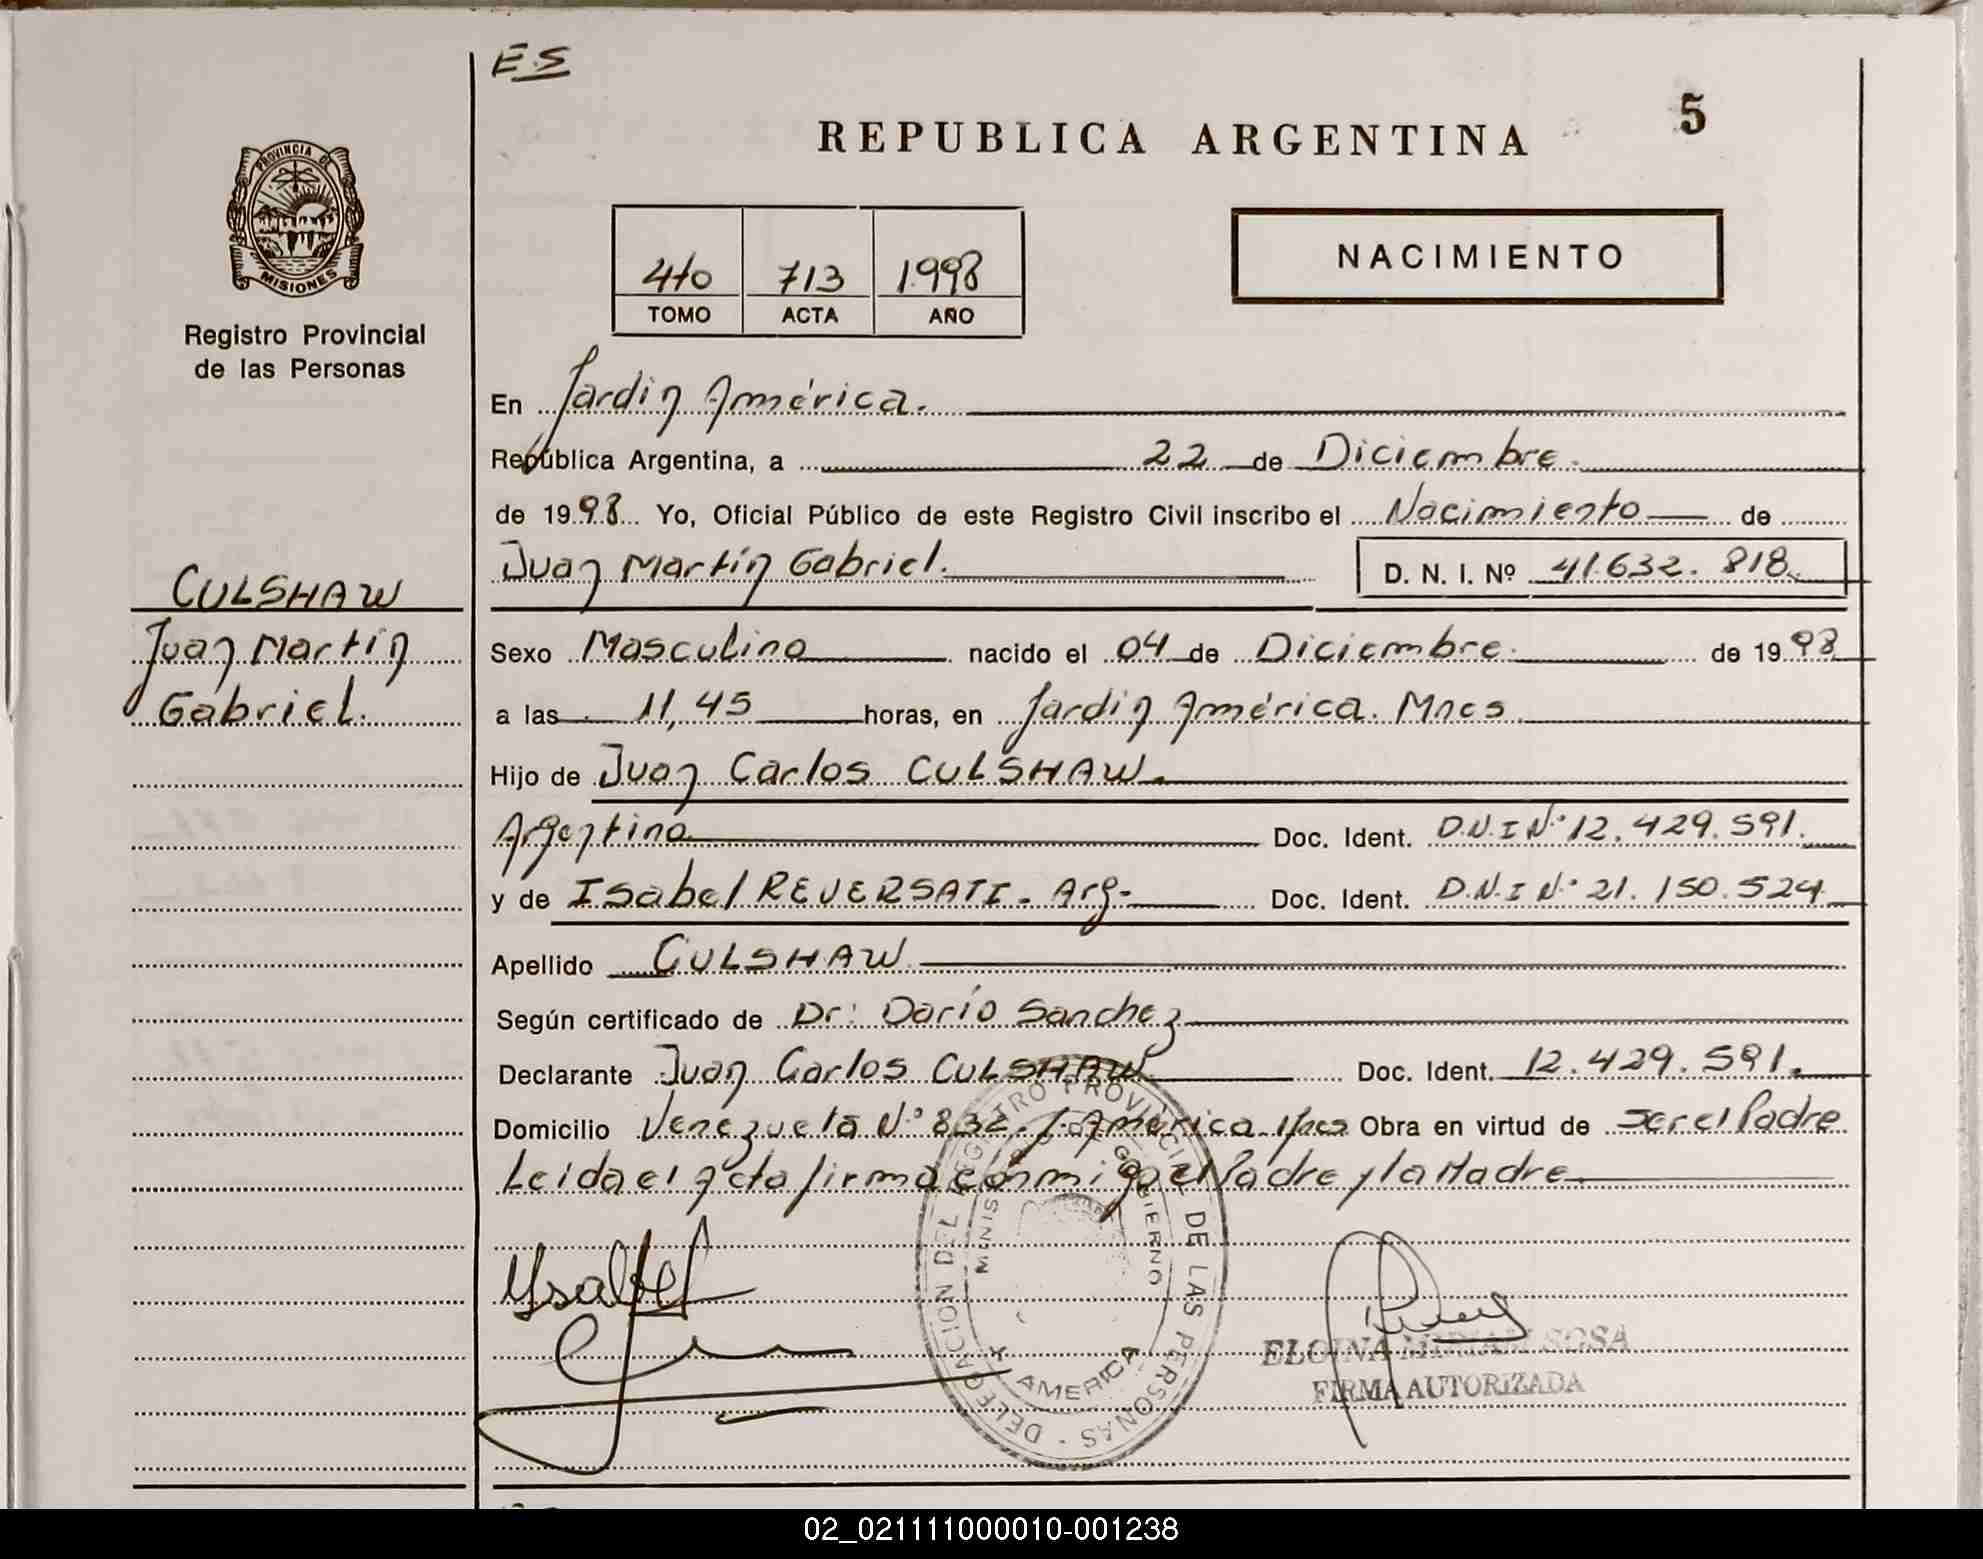 E.S
5
REPUBLICA ARGENTINA
PROVINCIA DE
MISIONES
Registro Provincial
de las Personas
4to 713 1.998
TOMO ACTA AÑO
NACIMIENTO
En Jardin América.
República Argentina, a 22 de Diciembre.
de 1998 Yo, Oficial Público de este Registro Civil inscribo el Nacimiento de
Juan Martín Gabriel. D. N. I. Nº 41.632.818.
CULSHAW
Juan Martín
Gabriel.
Sexo Masculino nacido el 04 de Diciembre. de 1998
a las 11,45 horas, en Jardin América. Mnes
Hijo de Juan Carlos CULSHAW.
Argentino Doc. Ident. D.N.I N° 12.429.591.
y de Isabel REVERSATI. Arg- Doc. Ident. D.N.I N° 21.150.524
Apellido CULSHAW
Según certificado de Dr: Darío Sanchez
Declarante Juan Carlos CULSHAW Doc. Ident. 12.429.591.
Domicilio Venezuela N° 832. J. América. Mnes Obra en virtud de ser el Padre
Leida el Acta firma conmigo el Padre y la Madre
DELEGACION DEL REGISTRO PROVINCIAL DE LAS PERSONAS
GOBIERNO
AMERICA
Ysabel
ELOINA MIRIAM SOSA
FIRMA AUTORIZADA
02_021111000010-001238